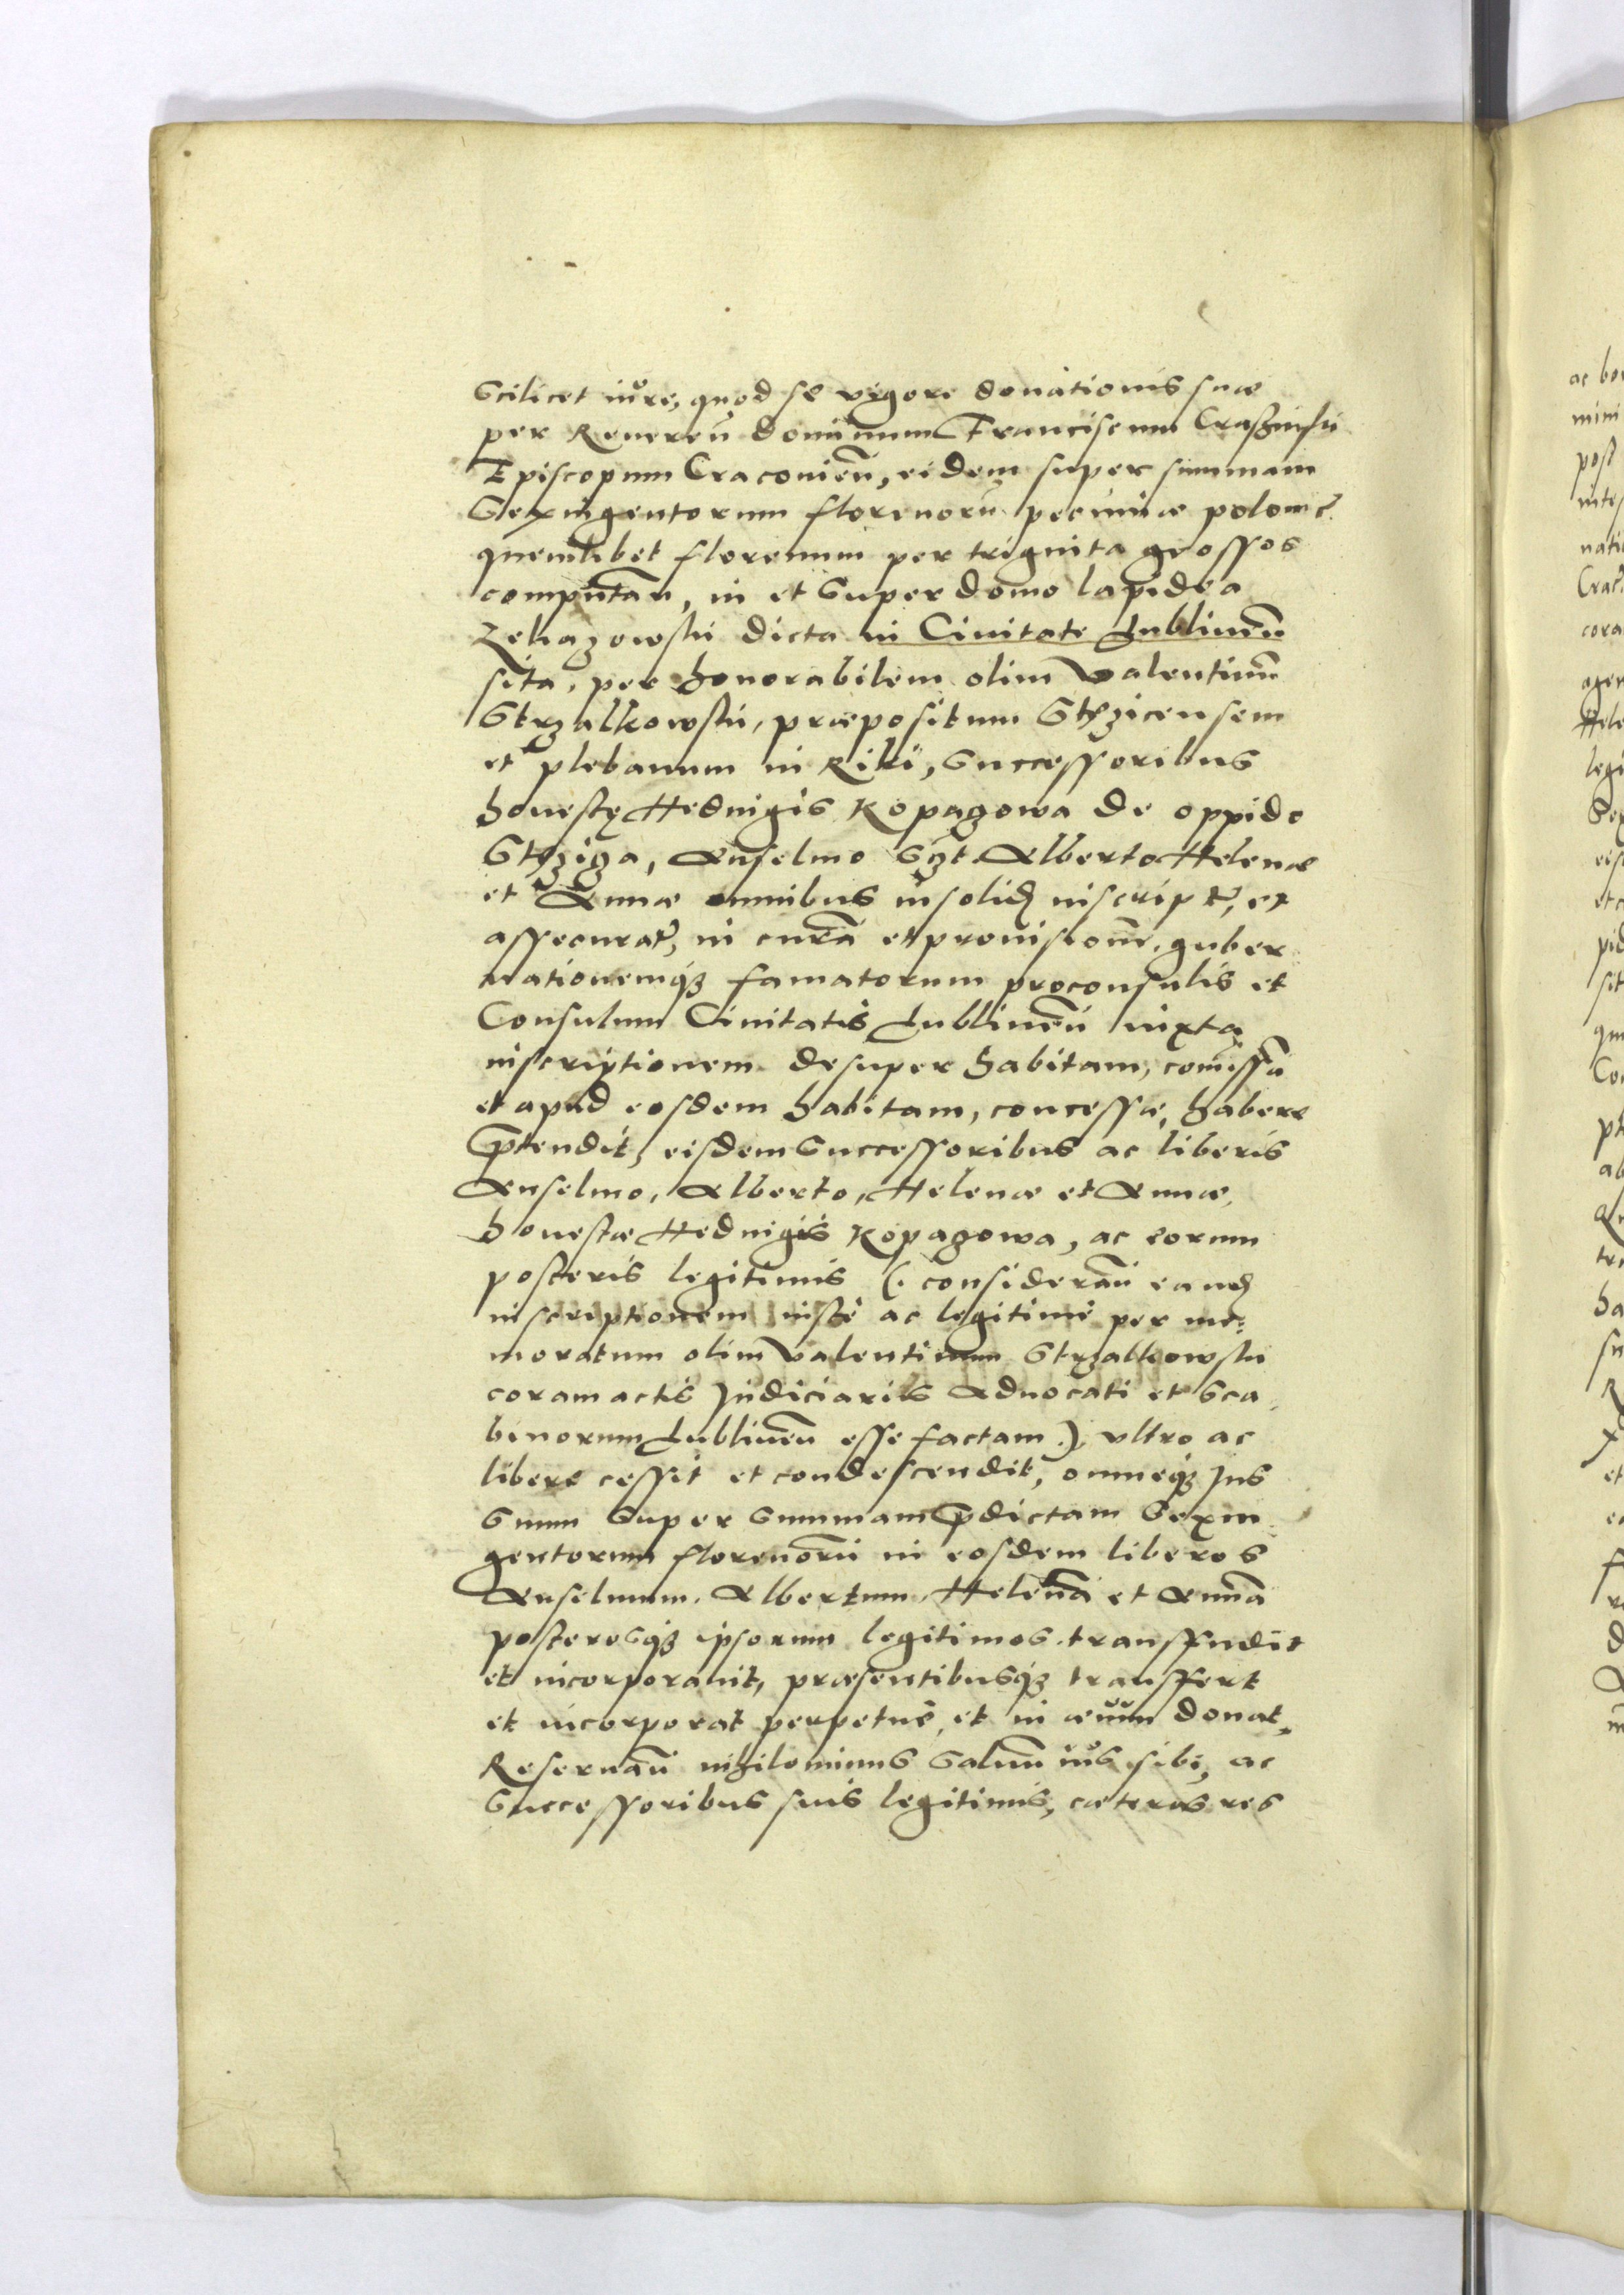 Scilicet iure, quod se vigore donationis suae
per Reueren̄ dominum Franciscum Craßinsky
Episcopum Cracovien̄, eidem super summam
Sexingentorum florenorū pecuniae polonic̄
quemlibet florenum per triginta grossos
computan̄, in et super domo lapidea
dicta in Ciuitate Lublinen̄
sita, per honorabilem olim Valentinū
Strzalkowsky, praepositum Stęzicensem
et plebanum in Riki, Successoribus
honestę Hedwigis Kopaczowa de oppido
Stęziga, Anselmo Alberto Helenae
et Annae omnibus insolid inscript, et
assecurat, in curā et prouisionē, guber
nationemq3 famatorum proconsulis et
Consulum Ciuitatis Lublinen̄ iuxta
inscriptionem desuper habitam, comissā
et apud eosdem habitam, concessae, habere
p̄tendit, eisdem Successoribus ac liberis
Anselmo, Alberto, Helenae et Annae,
honestae Hedwigis Kopaczowa, ac eorum
posteris legitimis (. consideran̄ eand
inscriptionem iustè ac legitimè per me:
moratum olim Valentinum Strzalkowsky
coram actis Judiciariis Aduocati et Sca
binorum Lublinen̄ esse factam .), vltro ac
libere cessit et condescendit, omneq3 Jus
Suum Super Summam p̄dictam Sexin
gentorum florenorū in eosdem liberos
Anselmum, Albertum, Helenā et Annā
posterosq3 ipsorum legitimos transfudit
et incorporauit, praesentibusq3 transfert
et incorporat perpetuè, et in aeuum donat,
Reseruan̄ nihilominus Saluū ius sibi, ac
Successoribus suis legitimis, caeteras res